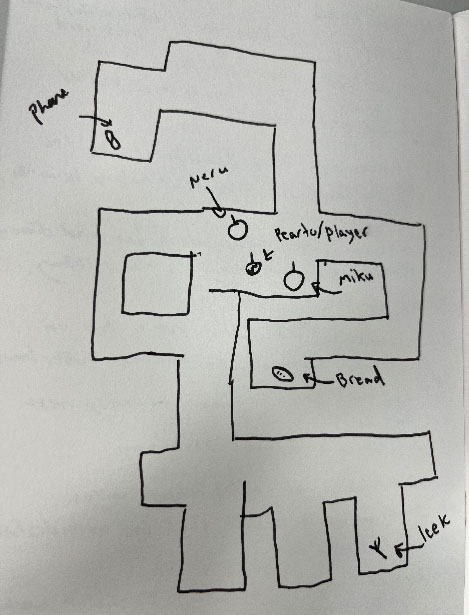 phone
Neru
Pearto/player
Miku
Bread
leek